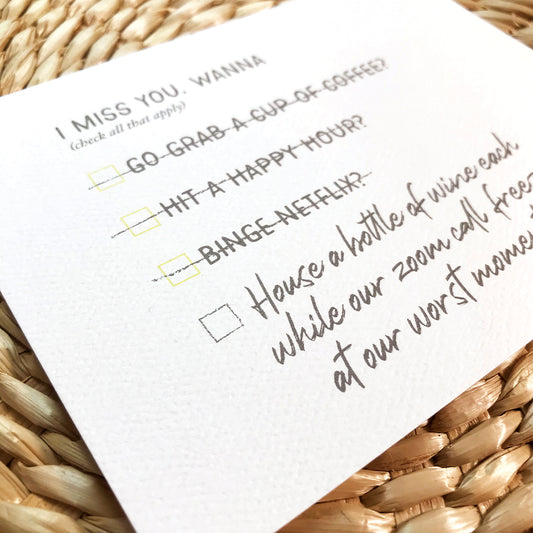 I MISS YOU. WANNA
(check all that apply)
GO GRAB A CUP OF COFFEE?
HIT A HAPPY HOUR?
BINGE NETFLIX?
House a bottle of wine each
while our zoom call
at our worst